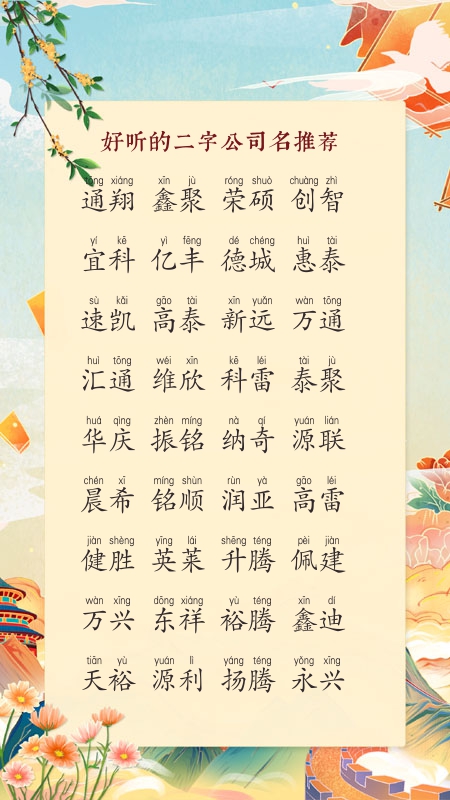 好听的二字公司名推荐
tōng xiáng xīn jù róng shuò chuàng zhì
通翔 鑫聚 荣硕 创智
yí kē yì fēng dé chéng huì tài
宜科 亿丰 德城 惠泰
sù kǎi gāo tài xīn yuǎn wàn tōng
速凯 高泰 新远 万通
huì tōng wéi xīn kē léi tài jù
汇通 维欣 科雷 泰聚
huá qìng zhèn míng nà qí yuán lián
华庆 振铭 纳奇 源联
chén xī míng shùn rùn yà gāo léi
晨希 铭顺 润亚 高雷
jiàn shèng yīng lái shēng téng pèi jiàn
健胜 英莱 升腾 佩建
wàn xīng dōng xiáng yù téng xīn dí
万兴 东祥 裕腾 鑫迪
tiān yù yuán lì yáng téng yǒng xīng
天裕 源利 扬腾 永兴